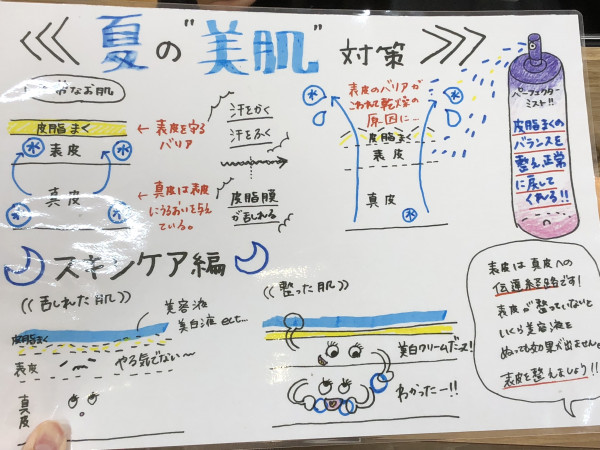 夏の"美肌"対策
なお肌
皮脂まく
水 表皮 水
真皮
水 水
← 表皮を守る
バリア
← 真皮は表皮
にうるおいを与え
ている。
汗をかく
汗をふく
皮脂膜
が乱れる
表皮のバリアが
こわれ乾燥の
原因に…
水 水
皮脂まく
表皮
真皮
水
パーフェクター
ミスト!!
皮脂まくの
バランスを
整え正常
に戻して
くれる!!
スキンケア編
((乱れた肌))
美容液
美白液 ect...
皮脂まく
表皮
やる気でない〜
真皮
((整った肌))
美白クリームだーヨ!
わかったー!!
表皮は真皮への
伝達経路です!
表皮が整っていないと
いくら美容液を
ぬっても効果が出ません
表皮を整えましょう!!